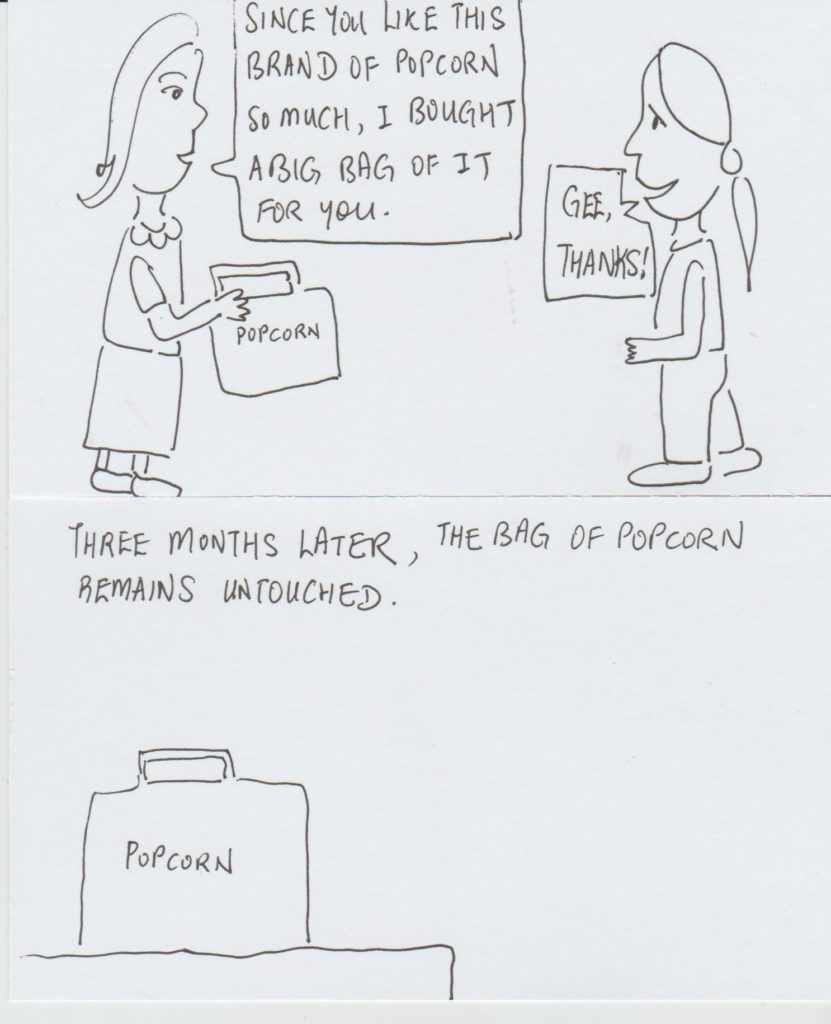 SINCE YOU LIKE THIS
BRAND OF POPCORN
SO MUCH, I BOUGHT
A BIG BAG OF IT
FOR YOU.
GEE,
THANKS!
POPCORN
THREE MONTHS LATER, THE BAG OF POPCORN
REMAINS UNTOUCHED.
POPCORN